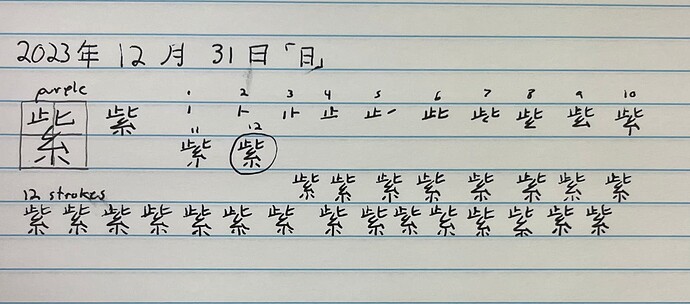 2023年 12月 31日「日」
purple 1 2 3 4 5 6 7 8 9 10
紫 紫 丨 ⺊ 止 止㇀ 此
11 12
紫 紫
紫 紫 紫 紫 紫 紫 紫 紫
12 strokes
紫 紫 紫 紫 紫 紫 紫 紫 紫 紫 紫 紫 紫 紫 紫